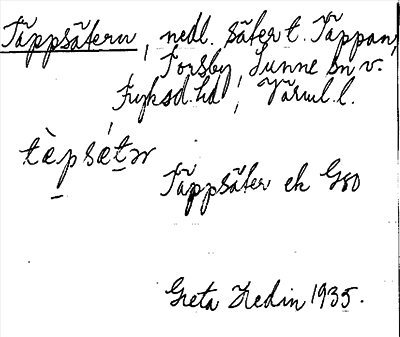 Täppsätern, nedl. säter t. Täppan,
Forsby, Sunne sn v.
Fryksd. hd, Värml. l.
tæ̀psǽtəɲ
Täppsäter ek G80
Greta Hedin 1935.